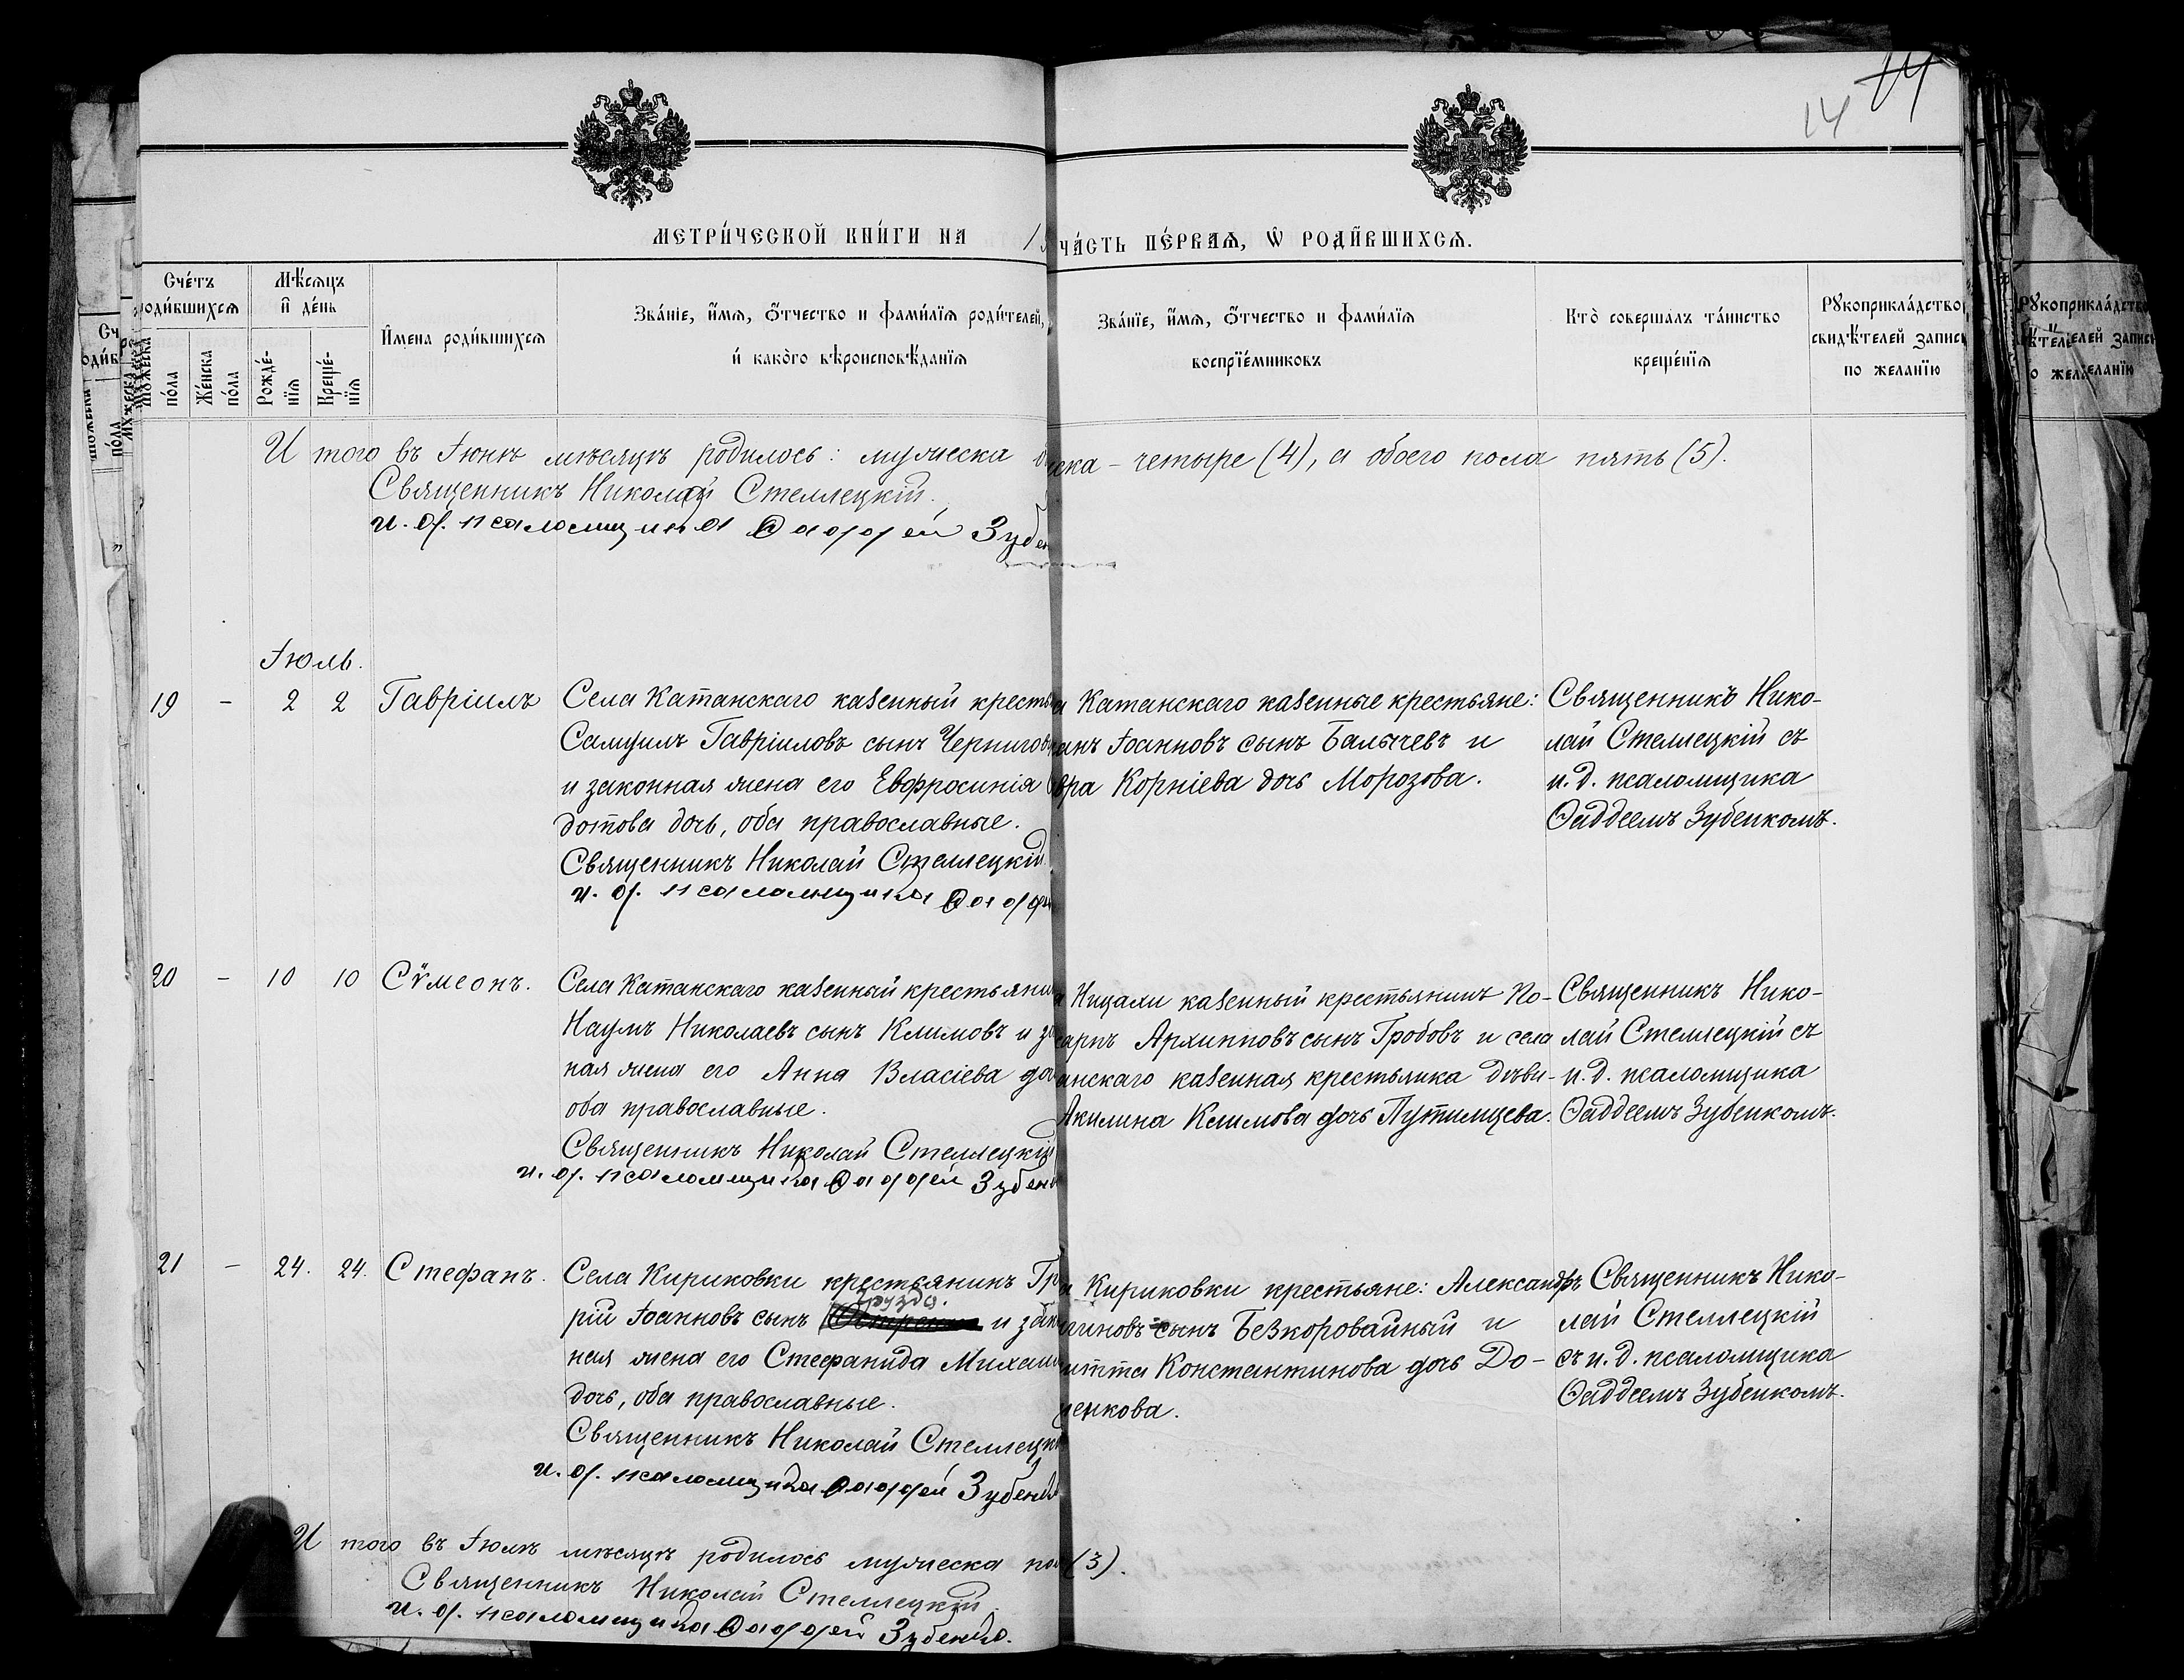 14 14
МЕТРИ́ЧЕСКОЙ КНИ́ГИ НА 1
ЧА́СТЬ ПЕ́РВАѦ, Ѡ РОДИ́ВШИХСѦ.
Сче́тъ роди́вшихсѧ
Мѣ́сѧцъ и де́нь
Имена роди́вшихсѧ
Зва́нїе, и́мѧ, о́тчество и фами́лїѧ роди́телей,
и како́го вѣроисповѣ́данїѧ
Зва́нїе, и́мѧ, о́тчество и фами́лїѧ
воспрїе́мниковъ
Кто̀ соверша́лъ та́инство
креще́нїѧ
Рꙋкоприкла́дство
свидѣ́телей запис
по желанїю
Мꙋжеска по́ла
Же́нска по́ла
Рожде́-нїѧ
Креще́-нїѧ
И того въ Іюнѣ мѣсяцѣ родилось: мужеска
ска - четыре (4), а обоего пола пять (5).
Священникъ Николай Стеллецкій.
и. д. псаломщика Ѳаддей Зубен
Іюль.
19 - 2 2 Гавріилъ
Села Катанскаго каѕенный кресть
Самуилъ Гавріиловъ сынъ Чернигов
и законная жена его Евфросинія
дотова дочь, оба православные.
Священникъ Николай Стеллецкій.
и. д. псаломщика Ѳадд
а Катанскаго каѕенные крестьяне:
анъ Іоанновъ сынъ Балычевъ и
вра Корніева дочь Морозова.
Священникъ Нико-
лай Стеллецкій съ
и. д. псаломщика
Ѳаддеемъ Зубенкомъ.
20 - 10 10 Сѵмеонъ.
Села Катанскаго каѕенный крестьяни
Наумъ Николаевъ сынъ Климовъ и за
ная жена его Анна Власіева доч
оба православные.
Священникъ Николай Стеллецкій
и. д. псаломщика Ѳаддей Зубенк
а Ницахи каѕенный крестьянинъ По-
карпъ Архипповъ сынъ Гробовъ и села
анскаго каѕенная крестьянка дѣви-
Акилина Климова дочь Путимцева.
Священникъ Нико-
лай Стеллецкій съ
и. д. псаломщика
Ѳаддеемъ Зубенкомъ.
21 - 24. 24. Стефанъ.
Села Кириковки крестьянинъ Гр
Груздо.
рій Іоанновъ сынъ и зак
ная жена его Стефанида Михаи
дочь, оба православные.
Священникъ Николай Стеллецк
и. д. псаломщика Ѳаддей Зубенко
а Кириковки крестьяне: Александръ
гиновъ сынъ Безкоровайный и
итта Константинова дочь До-
ценкова.
Священникъ Нико-
лай Стеллецкій
съ и. д. псаломщика
Ѳаддеемъ Зубенкомъ.
И того въ Іюлѣ мѣсяцѣ родилось мужеска пол
(3).
Священникъ Николай Стеллецкій.
и. д. псаломщика Ѳаддей Зубенко.